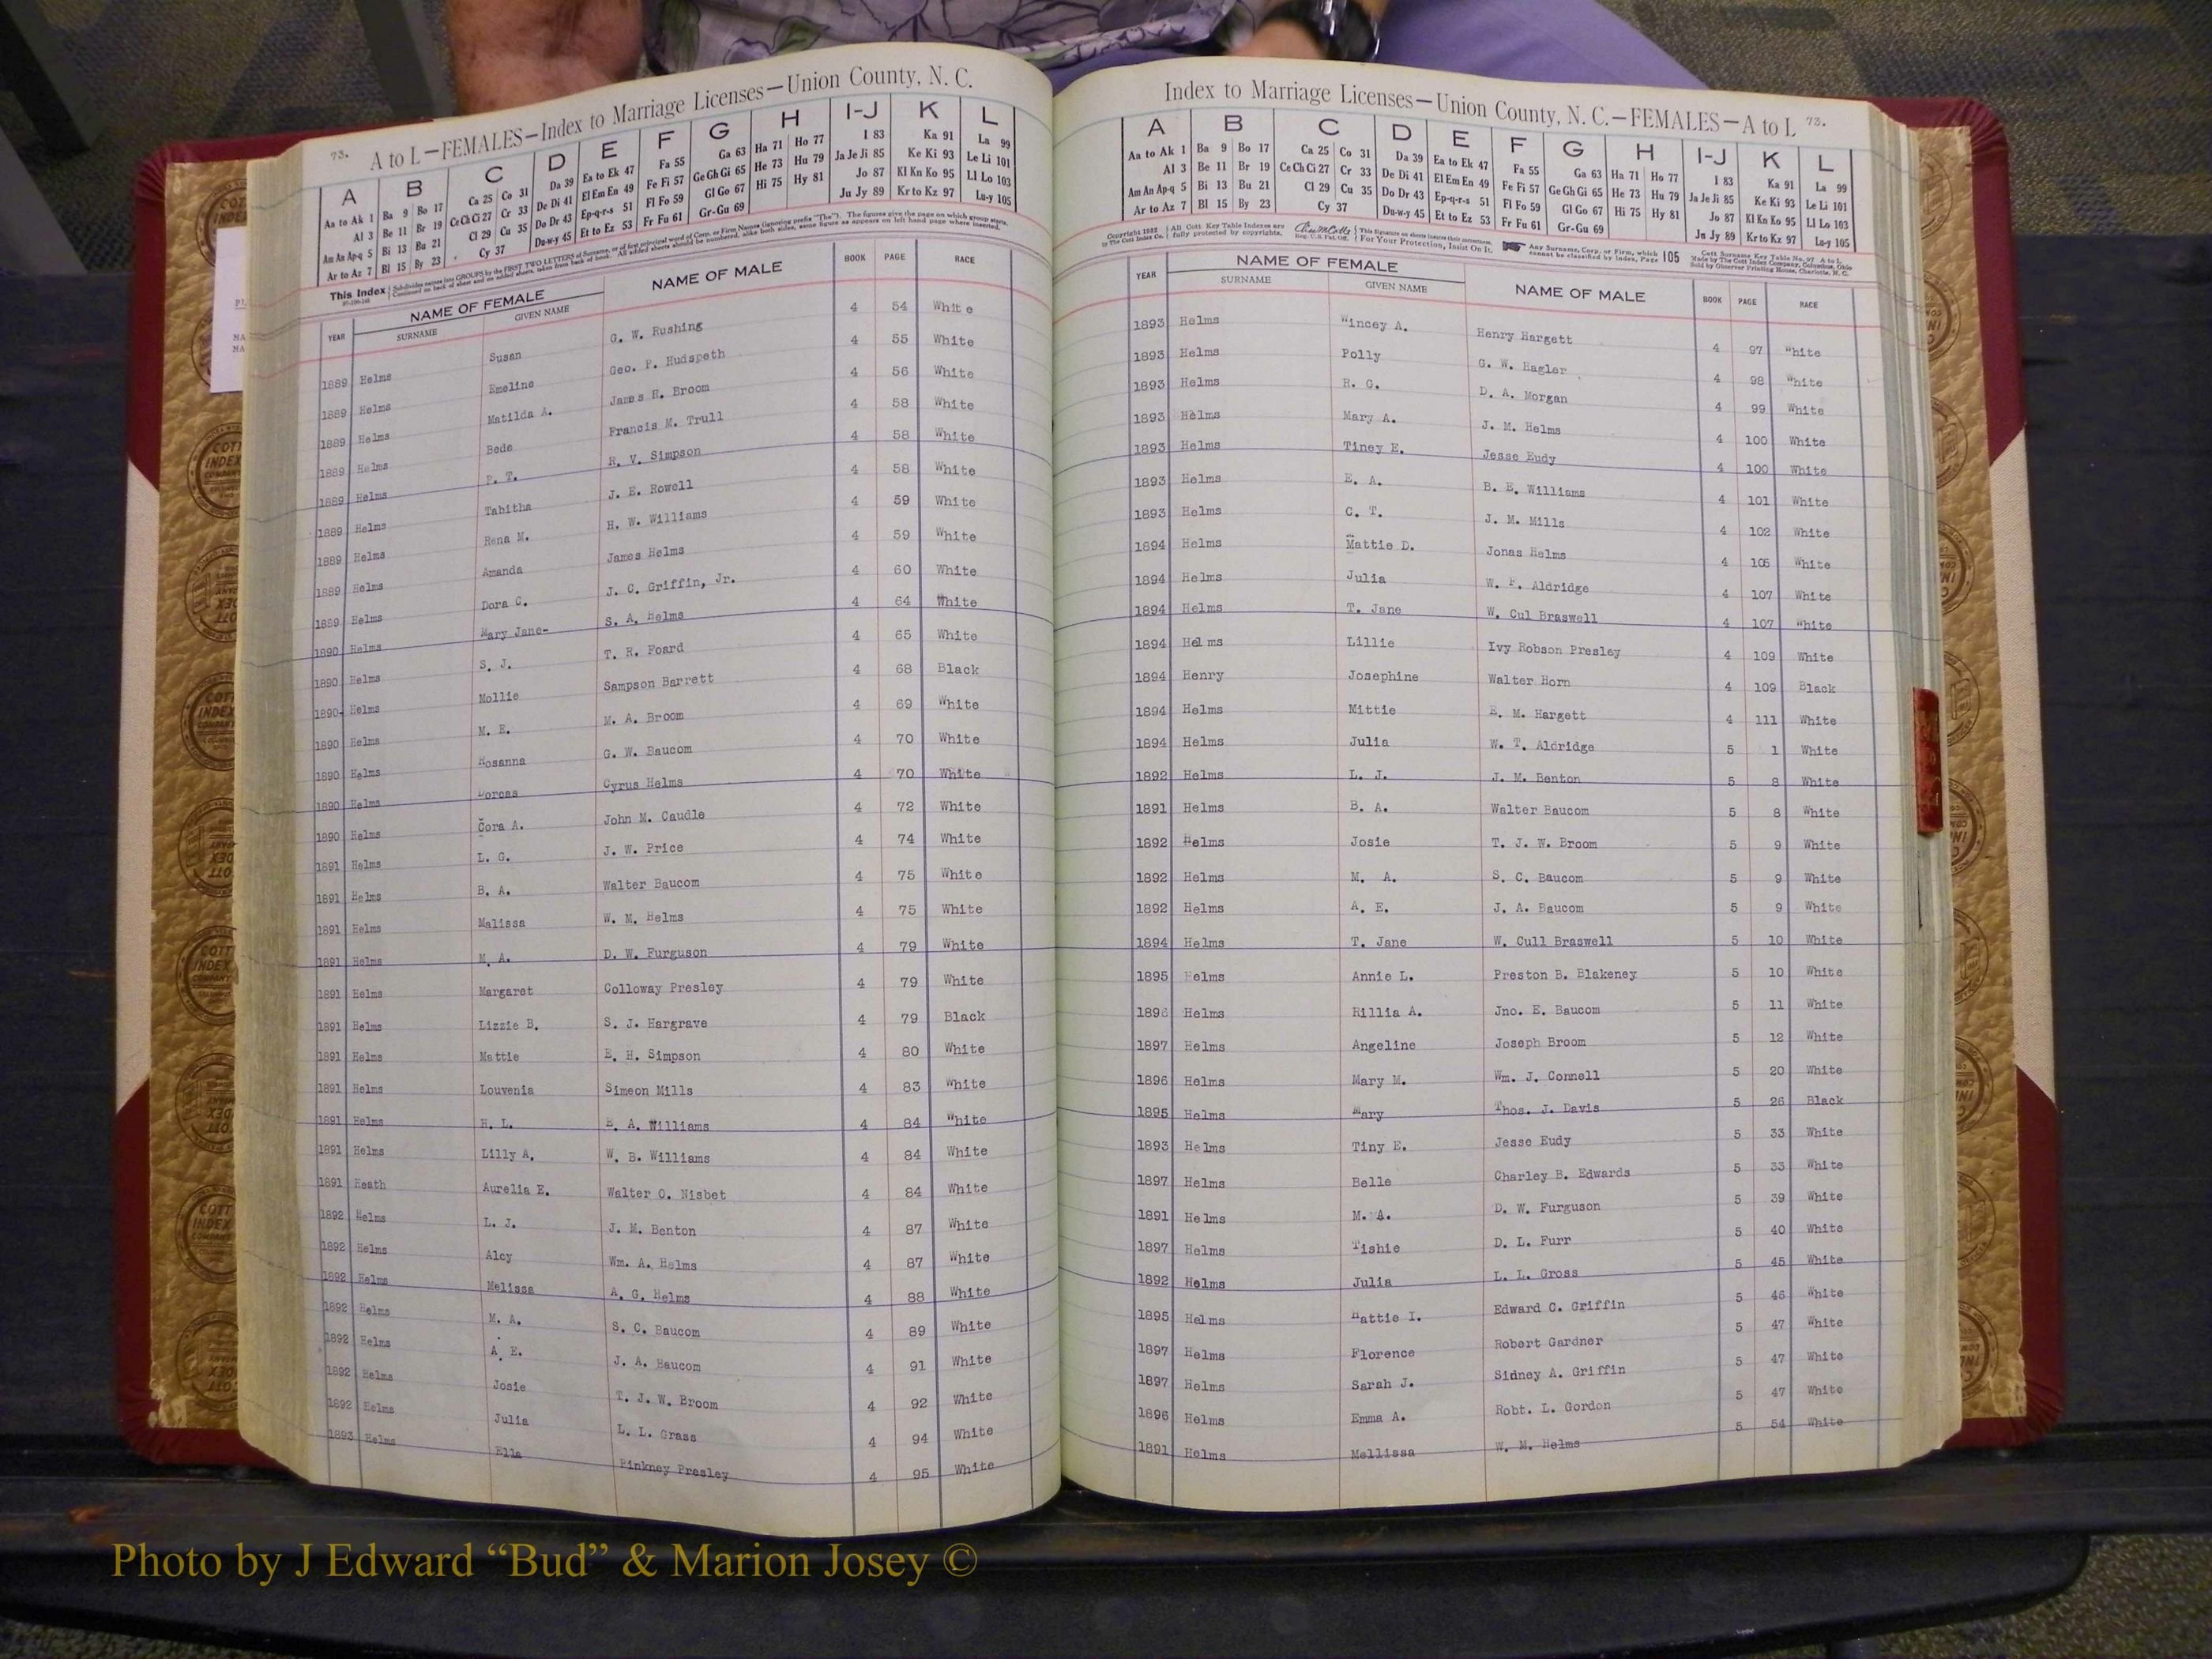 73. A to L—FEMALES—Index to Marriage Licenses—Union County, N. C.
A B C D E F G H I-J K L
Aa to Ak 1 Ba 9 Bo 17 Ca 25 Co 31 Da 39 Ea to Ek 47 Fa 55 Ga 63 Ha 71 Ho 77 I 83 Ka 91 La 99
Al 3 Be 11 Br 19 Ce Ch Ci 27 Cr 33 De Di 41 El Em En 49 Fe Fi 57 Ge Gh Gi 65 He 73 Hu 79 Ja Je Ji 85 Ke Ki 93 Le Li 101
Am An Ap-q 5 Bi 13 Bu 21 Cl 29 Cu 35 Do Dr 43 Ep-q-r-s 51 Fl Fo 59 Gl Go 67 Hi 75 Hy 81 Jo 87 Kl Kn Ko 95 Ll Lo 103
Ar to Az 7 Bl 15 By 23 Cy 37 Du-w-y 45 Et to Ez 53 Fr Fu 61 Gr-Gu 69 Ju Jy 89 Kr to Kz 97 Lu-y 105
This Index
YEAR NAME OF FEMALE NAME OF MALE BOOK PAGE RACE
SURNAME GIVEN NAME
1889 Helms Susan G. W. Rushing 4 54 White
1889 Helms Emeline Geo. P. Hudspeth 4 55 White
1889 Helms Matilda A. James R. Broom 4 56 White
1889 Helms Bede Francis M. Trull 4 58 White
1889 Helms P. T. R. V. Simpson 4 58 White
1889 Helms Tabitha J. E. Rowell 4 58 White
1889 Helms Rena M. H. W. Williams 4 59 White
1889 Helms Amanda James Helms 4 59 White
1889 Helms Dora C. J. C. Griffin, Jr. 4 60 White
1890 Helms Mary Jane- S. A. Helms 4 64 White
1890 Helms S. J. T. R. Foard 4 65 White
1890- Helms Mollie Sampson Barrett 4 68 Black
1890 Helms M. E. M. A. Broom 4 69 White
1890 Helms Rosanna G. W. Baucom 4 70 White
1890 Helms Dorcas Cyrus Helms 4 70 White
1890 Helms Cora A. John M. Caudle 4 72 White
1891 Helms L. G. J. W. Price 4 74 White
1891 Helms B. A. Walter Baucom 4 75 White
1891 Helms Malissa W. M. Helms 4 75 White
1891 Helms M. A. D. W. Furguson 4 79 White
1891 Helms Margaret Colloway Presley 4 79 White
1891 Helms Lizzie B. S. J. Hargrave 4 79 Black
1891 Helms Mattie E. H. Simpson 4 80 White
1891 Helms Louvenia Simeon Mills 4 83 White
1891 Helms H. L. E. A. Williams 4 84 White
1891 Helms Lilly A. W. B. Williams 4 84 White
1891 Heath Aurelia E. Walter O. Nisbet 4 84 White
1892 Helms L. J. J. M. Benton 4 87 White
1892 Helms Alcy Wm. A. Helms 4 87 White
1892 Helms Melissa A. G. Helms 4 88 White
1892 Helms M. A. S. C. Baucom 4 89 White
1892 Helms A. E. J. A. Baucom 4 91 White
1892 Helms Josie T. J. W. Broom 4 92 White
1892 Helms Julia L. L. Grass 4 94 White
1893 Helms Ella Pinkney Presley 4 95 White
Index to Marriage Licenses—Union County, N. C.—FEMALES—A to L 73.
A B C D E F G H I-J K L
Aa to Ak 1 Ba 9 Bo 17 Ca 25 Co 31 Da 39 Ea to Ek 47 Fa 55 Ga 63 Ha 71 Ho 77 I 83 Ka 91 La 99
Al 3 Be 11 Br 19 Ce Ch Ci 27 Cr 33 De Di 41 El Em En 49 Fe Fi 57 Ge Gh Gi 65 He 73 Hu 79 Ja Je Ji 85 Ke Ki 93 Le Li 101
Am An Ap-q 5 Bi 13 Bu 21 Cl 29 Cu 35 Do Dr 43 Ep-q-r-s 51 Fl Fo 59 Gl Go 67 Hi 75 Hy 81 Jo 87 Kl Kn Ko 95 Ll Lo 103
Ar to Az 7 Bl 15 By 23 Cy 37 Du-w-y 45 Et to Ez 53 Fr Fu 61 Gr-Gu 69 Ju Jy 89 Kr to Kz 97 Lu-y 105
YEAR NAME OF FEMALE NAME OF MALE BOOK PAGE RACE
SURNAME GIVEN NAME
1893 Helms Wincey A. Henry Hargett 4 97 White
1893 Helms Polly G. W. Hagler 4 98 White
1893 Helms R. G. D. A. Morgan 4 99 White
1893 Helms Mary A. J. M. Helms 4 100 White
1893 Helms Tiney E. Jesse Eudy 4 100 White
1893 Helms E. A. B. E. Williams 4 101 White
1893 Helms C. T. J. M. Mills 4 102 White
1894 Helms Mattie D. Jonas Helms 4 105 White
1894 Helms Julia W. F. Aldridge 4 107 White
1894 Helms T. Jane W. Cul Braswell 4 107 White
1894 Helms Lillie Ivy Robson Presley 4 109 White
1894 Henry Josephine Walter Horn 4 109 Black
1894 Helms Mittie E. M. Hargett 4 111 White
1894 Helms Julia W. T. Aldridge 5 1 White
1892 Helms L. J. J. M. Benton 5 8 White
1891 Helms B. A. Walter Baucom 5 8 White
1892 Helms Josie T. J. W. Broom 5 9 White
1892 Helms M. A. S. C. Baucom 5 9 White
1892 Helms A. E. J. A. Baucom 5 9 White
1894 Helms T. Jane W. Cull Braswell 5 10 White
1895 Helms Annie L. Preston B. Blakeney 5 10 White
1896 Helms Rillia A. Jno. E. Baucom 5 11 White
1897 Helms Angeline Joseph Broom 5 12 White
1896 Helms Mary M. Wm. J. Connell 5 20 White
1895 Helms Mary Thos. J. Davis 5 26 Black
1893 Helms Tiny E. Jesse Eudy 5 33 White
1897 Helms Belle Charley B. Edwards 5 33 White
1891 Helms M. A. D. W. Furguson 5 39 White
1897 Helms Tishie D. L. Furr 5 40 White
1892 Helms Julia L. L. Gross 5 45 White
1895 Helms Hattie I. Edward C. Griffin 5 46 White
1897 Helms Florence Robert Gardner 5 47 White
1897 Helms Sarah J. Sidney A. Griffin 5 47 White
1896 Helms Emma A. Robt. L. Gordon 5 47 White
1891 Helms Mellissa W. M. Helms 5 54 White
Photo by J Edward “Bud” & Marion Josey ©